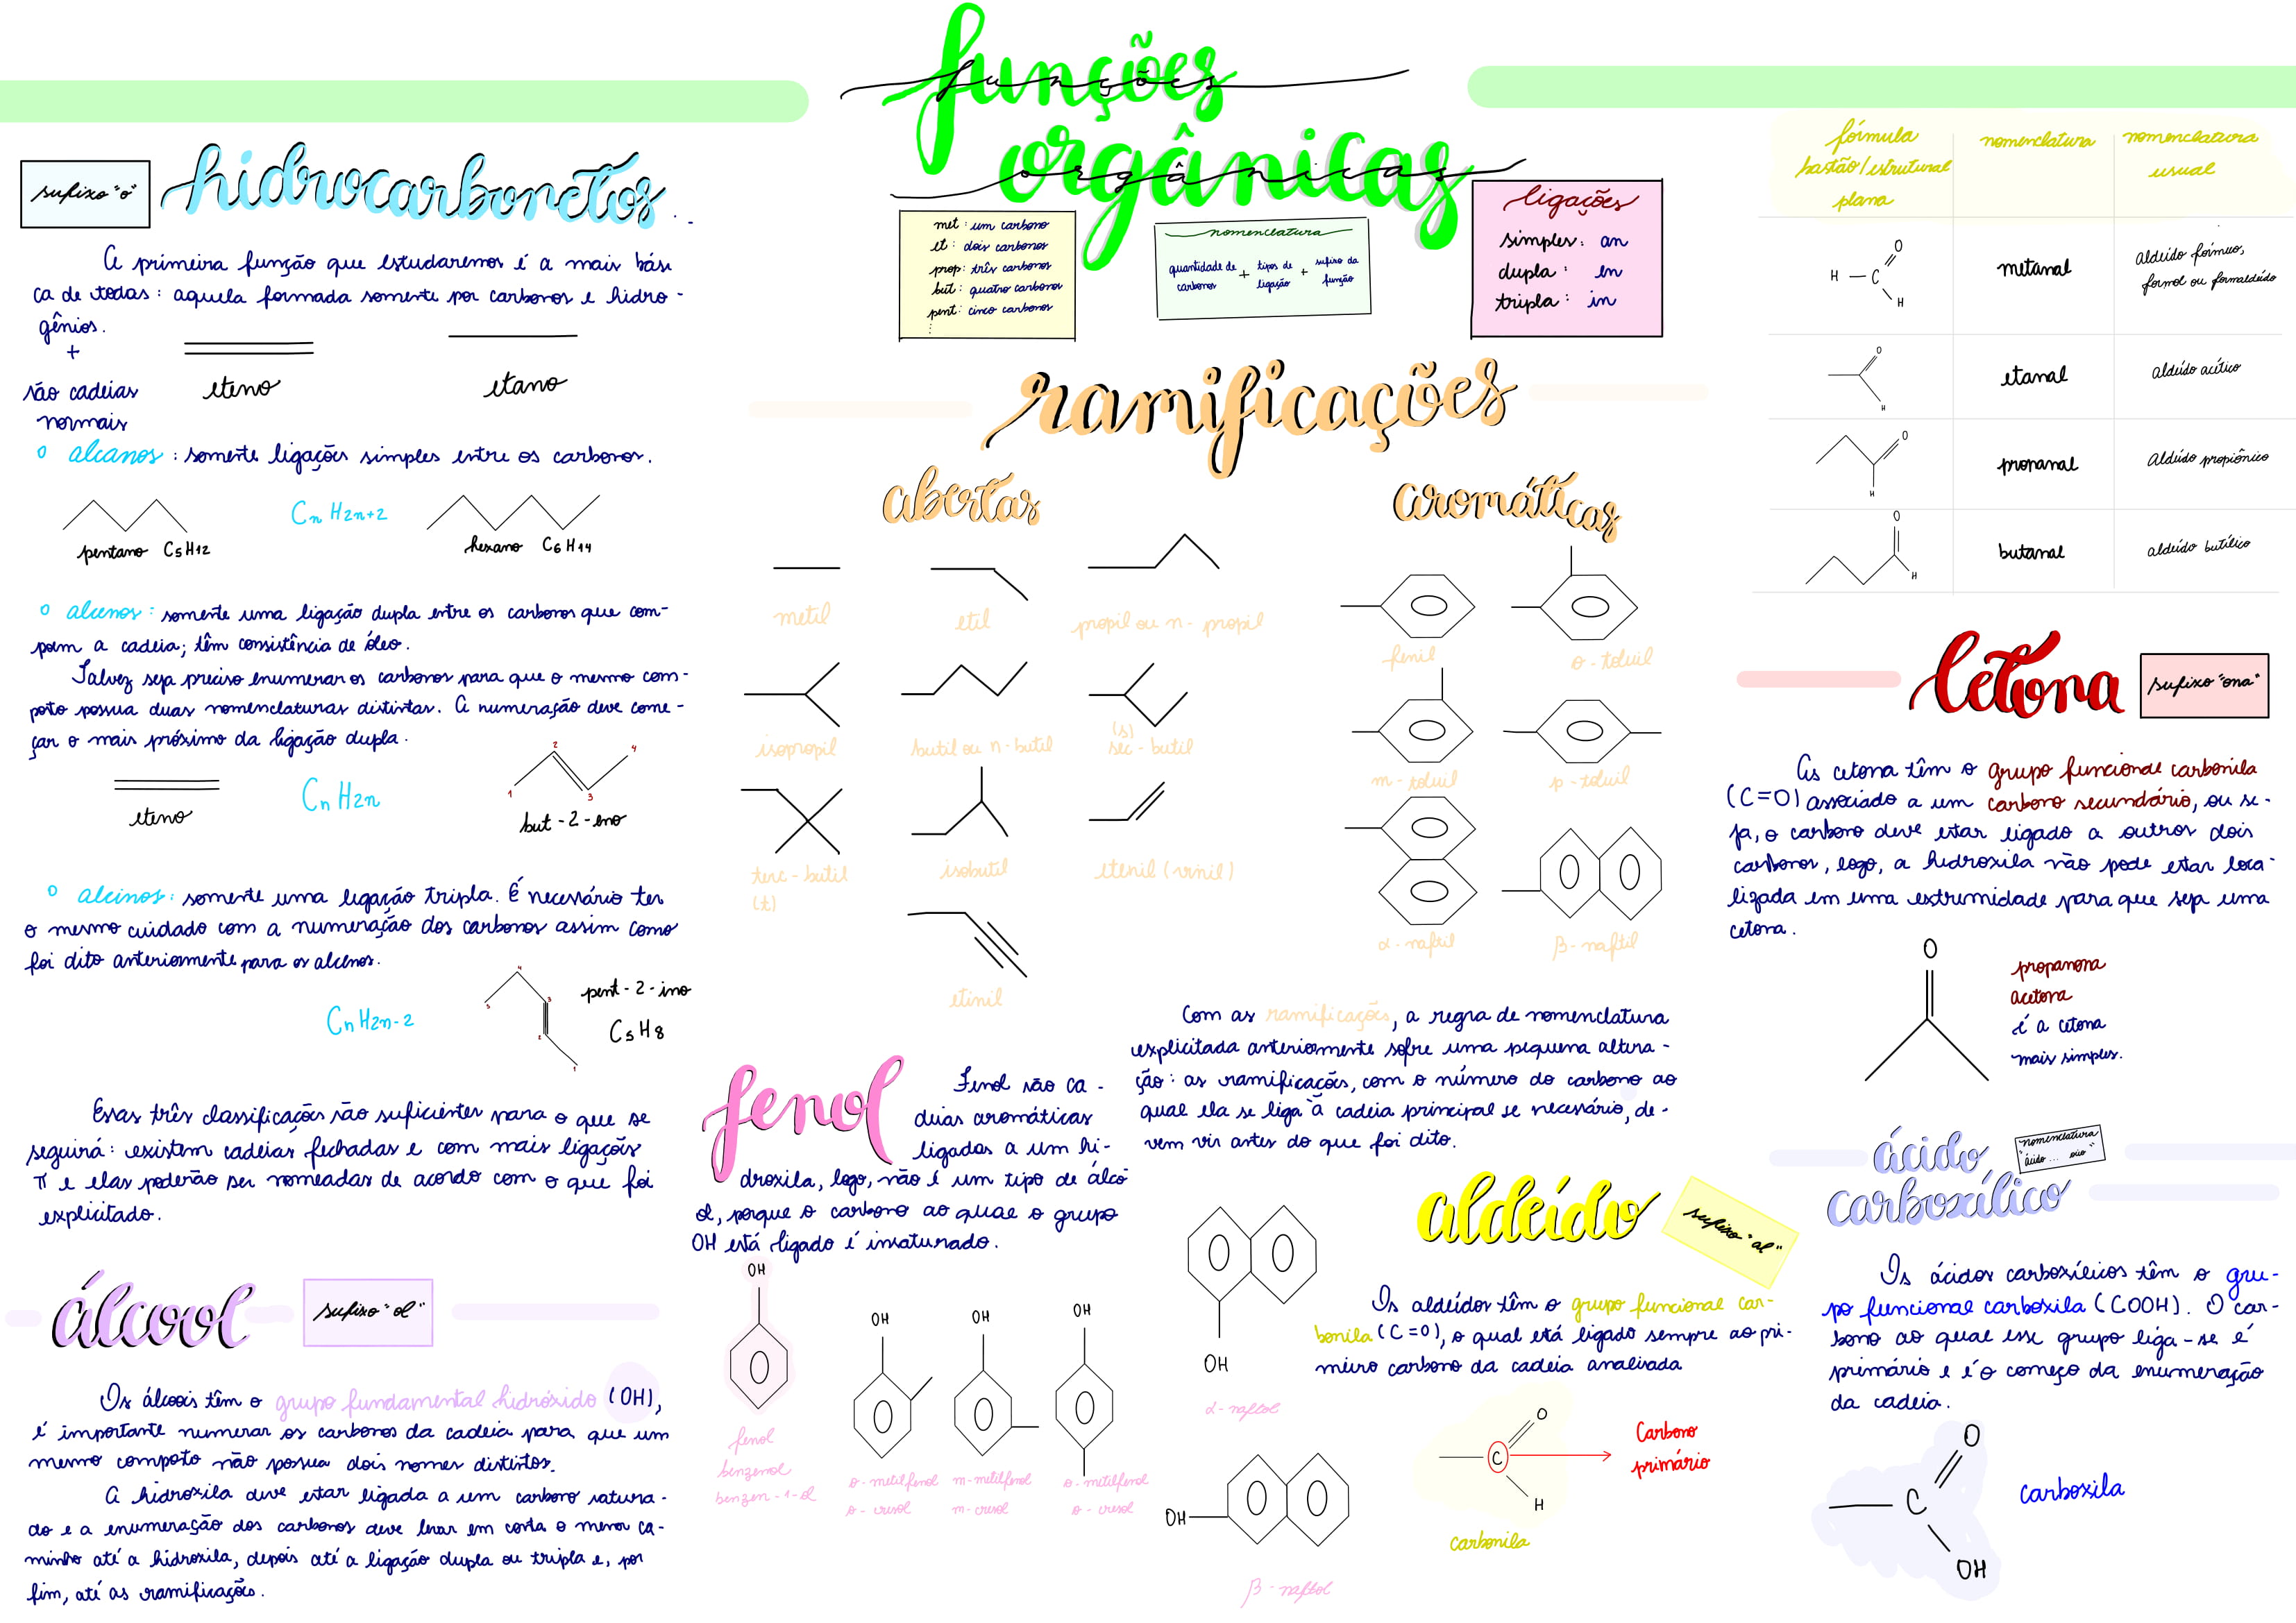 funções
funções
orgânicas
orgânicas
sufixo "o"
hidrocarbonetos
A primeira função que estudaremos é a mais bási
ca de todas: aquela formada somente por carbonos e hidro-
gênios.
+
são cadeias
normais
eteno
etano
alcanos: somente ligações simples entre os carbonos.
pentano C5H12
CnH2n+2
hexano C6H14
alcenos: somente uma ligação dupla entre os carbonos que com-
põem a cadeia; têm consistência de óleo.
Talvez seja preciso enumerar os carbonos para que o mesmo com-
posto possua duas nomenclaturas distintas. A numeração deve come-
çar o mais próximo da ligação dupla.
eteno
CnH2n
1
2
3
4
but-2-eno
alcinos: somente uma ligação tripla. É necessário ter
o mesmo cuidado com a numeração dos carbonos assim como
foi dito anteriormente para os alcenos.
CnH2n-2
5
4
3
2
1
pent-2-ino
C5H8
Essas três classificações são suficientes para o que se
seguirá: existem cadeias fechadas e com mais ligações
π e elas poderão ser nomeadas de acordo com o que foi
explicitado.
álcool
sufixo "ol"
Os álcoois têm o grupo fundamental hidróxido (OH),
é importante numerar os carbonos da cadeia para que um
mesmo composto não possua dois nomes distintos.
A hidroxila deve estar ligada a um carbono satura-
do e a enumeração dos carbonos deve levar em conta o menor ca-
minho até a hidroxila, depois até a ligação dupla ou tripla e, por
fim, até as ramificações.
met: um carbono
et: dois carbonos
prop: três carbonos
but: quatro carbonos
pent: cinco carbonos
⋮
nomenclatura
quantidade de carbonos + tipos de ligação + sufixo da função
ligações
simples: an
dupla: en
tripla: in
ramificações
abertas
metil
etil
propil ou n-propil
isopropil
butil ou n-butil
(s)
sec-butil
terc-butil
(t)
isobutil
etenil (vinil)
etinil
aromáticas
fenil
o-toluil
m-toluil
p-toluil
α-naftil
β-naftil
Com as ramificações, a regra de nomenclatura
explicitada anteriormente sofre uma pequena altera-
ção: as ramificações, com o número do carbono ao
qual ela se liga à cadeia principal se necessário, de-
vem vir antes do que foi dito.
fenol
Fenol são ca-
deias aromáticas
ligadas a um hi-
droxila, logo, não é um tipo de álco
ol, porque o carbono ao qual o grupo
OH está ligado é insaturado.
OH
fenol
benzenol
benzen-1-ol
OH
o-metilfenol
o-cresol
OH
m-metilfenol
m-cresol
OH
o-metilfenol
o-cresol
OH
α-naftol
OH
β-naftol
aldeído
sufixo "al"
Os aldeídos têm o grupo funcional car-
bonila (C=O), o qual está ligado sempre ao pri-
meiro carbono da cadeia analisada
C
O
H
Carbono
primário
carbonila
fórmula
bastão/estrutural
plana
nomenclatura
nomenclatura
usual
H
C
O
H
metanal
aldeído fórmico,
formol ou formaldeído
O
H
etanal
aldeído acético
O
H
propanal
aldeído propiônico
O
H
butanal
aldeído butílico
cetona
sufixo "ona"
As cetona têm o grupo funcional carbonila
(C=O) associado a um carbono secundário, ou se-
ja, o carbono deve estar ligado a outros dois
carbonos, logo, a hidroxila não pode estar loca-
lizada em uma extremidade para que seja uma
cetona.
O
propanona
acetona
é a cetona
mais simples.
ácido
carboxílico
nomenclatura
"ácido ... oico"
Os ácidos carboxílicos têm o gru-
po funcional carboxila (COOH). O car-
bono ao qual esse grupo liga-se é
primário e é o começo da enumeração
da cadeia.
O
C
OH
carboxila